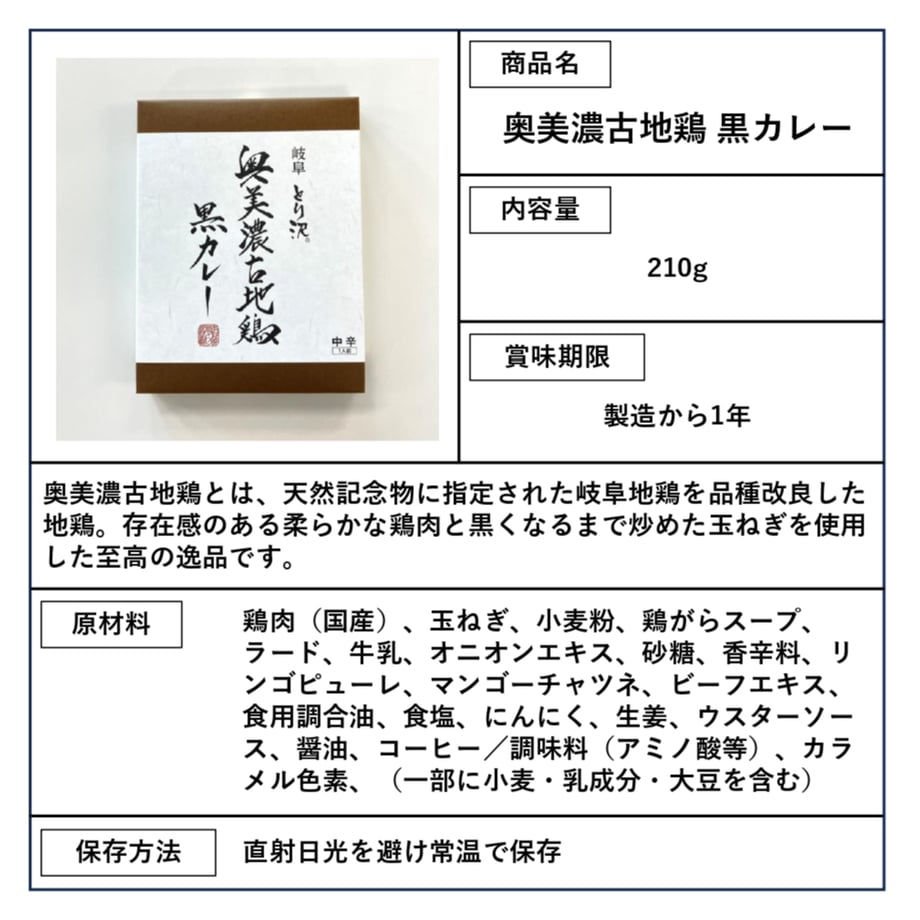 岐阜 とり沢。
奥美濃古地鶏
黒カレー
中辛
1人前
商品名
奥美濃古地鶏 黒カレー
内容量
210g
賞味期限
製造から1年
奥美濃古地鶏とは、天然記念物に指定された岐阜地鶏を品種改良した
地鶏。存在感のある柔らかな鶏肉と黒くなるまで炒めた玉ねぎを使用
した至高の逸品です。
原材料
鶏肉（国産）、玉ねぎ、小麦粉、鶏がらスープ、
ラード、牛乳、オニオンエキス、砂糖、香辛料、リ
ンゴピューレ、マンゴーチャツネ、ビーフエキス、
食用調合油、食塩、にんにく、生姜、ウスターソー
ス、醤油、コーヒー／調味料（アミノ酸等）、カラ
メル色素、（一部に小麦・乳成分・大豆を含む）
保存方法
直射日光を避け常温で保存